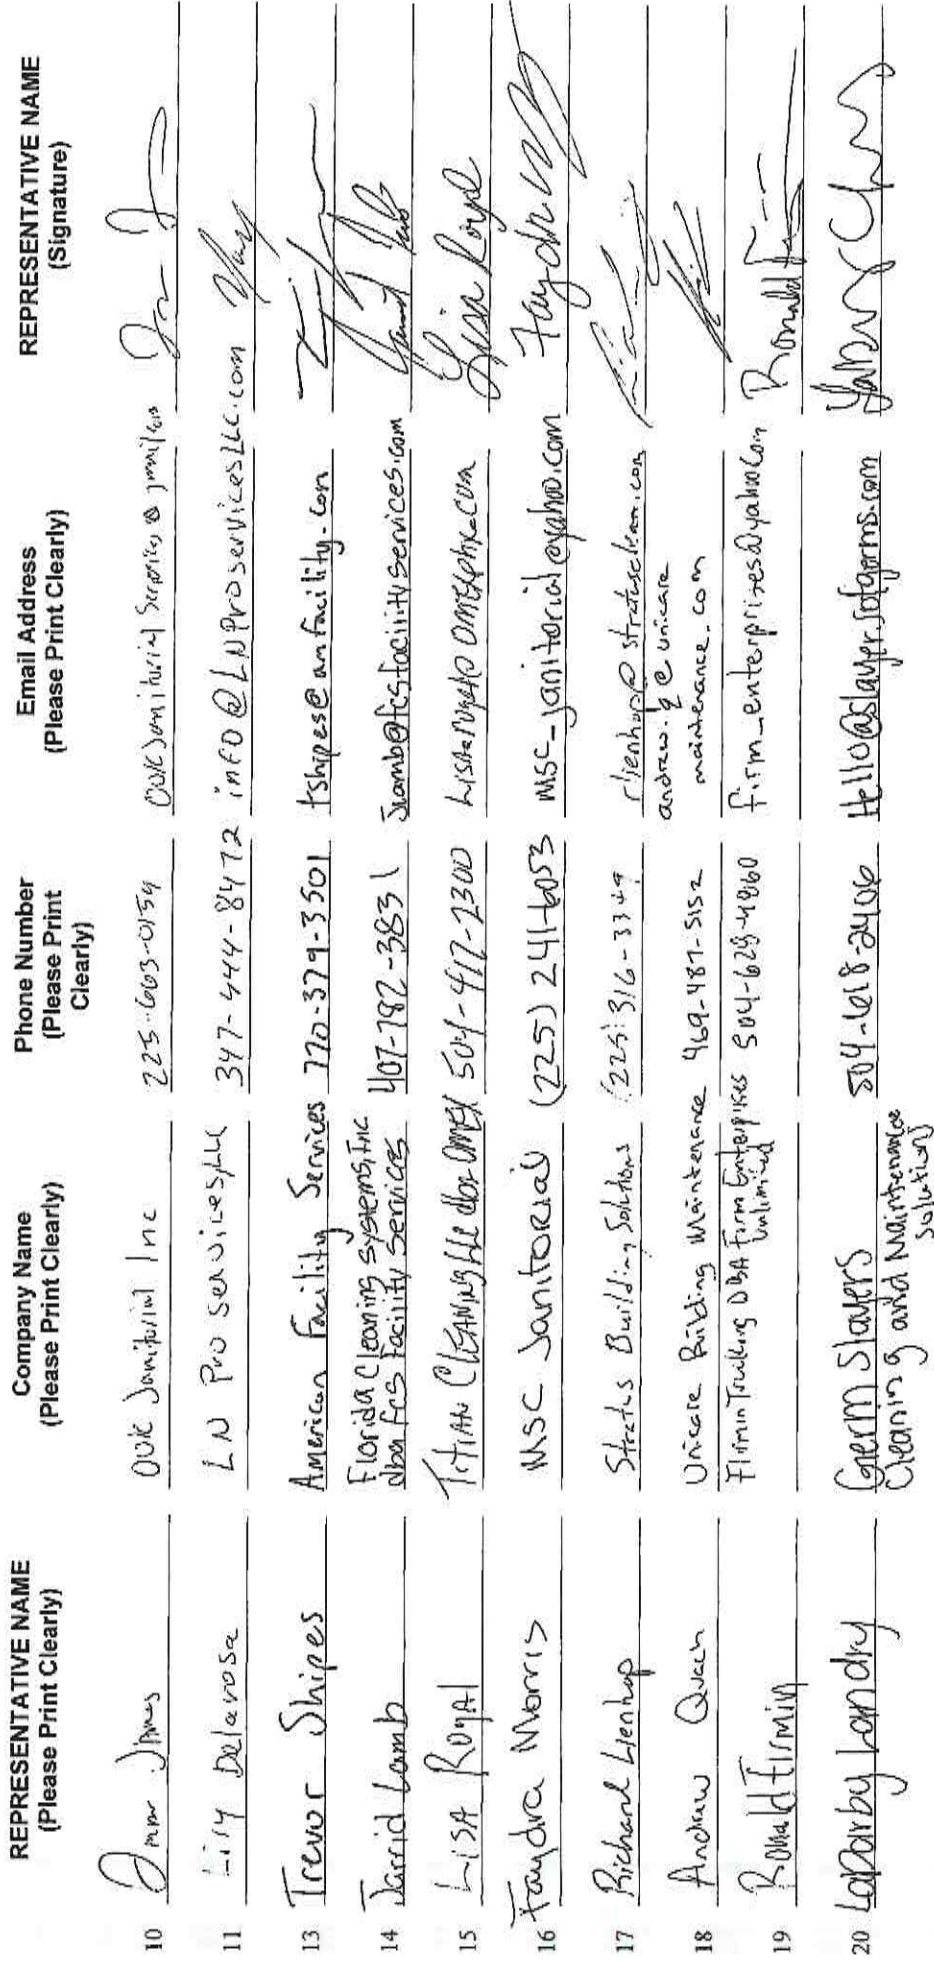 REPRESENTATIVE NAME (Please Print Clearly) Company Name (Please Print Clearly) Phone Number (Please Print Clearly) Email Address (Please Print Clearly) REPRESENTATIVE NAME (Signature)
10 James Janitorial Inc 225-663-0154
11 Delarosa LN Pro Services, LLC 347-444-8472 info@LNProservicesLLC.com
13 Trevor Shipes American Facility Services 770-379-3501 tshipes@amfacility.com
14 Jarrid Lamb Florida Cleaning Systems, Inc 407-782-3831 Jlamb@fcsfacilityservices.com
dba FCS Facility Services
15 LISA ROYAL 504-417-2300 Lisa Royal
16 Faydra Morris MSC Janitorial (225) 241-6053 MSC_janitorial@yahoo.com Faydra
17 Richard Lienhop Stratus Building Solutions (225) 316-3349 rlienhop@stratusclean.com
18 Andrew Quach Unicare Building Maintenance 469-487-5152 andrew.q@unicare
maintenance.com
19 Ronald Firmin Firmin Trucking DBA Firm Enterprises Unlimited 504-628-4860 firm_enterprises@yahoo.com Ronald
20 LaDarby Landry Germ Slayers 504-618-2406 Hello@slayersofgerms.com
Cleaning and Maintenance
Solutions